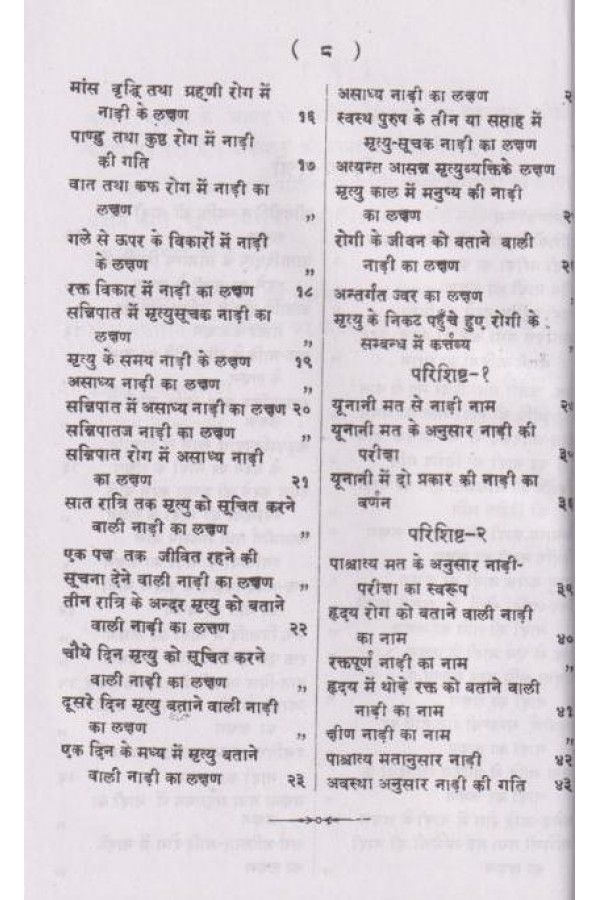 ( ८ )
मांस वृद्धि तथा ग्रहणी रोग में
नाड़ी के लक्षण १६
पाण्डु तथा कुष्ठ रोग में नाड़ी
की गति १७
वात तथा कफ रोग में नाड़ी का
लक्षण ,,
गले से ऊपर के विकारों में नाड़ी
के लक्षण ,,
रक्त विकार में नाड़ी का लक्षण १८
सन्निपात में मृत्युसूचक नाड़ी का
लक्षण ,,
मृत्यु के समय नाड़ी के लक्षण १९
असाध्य नाड़ी का लक्षण ,,
सन्निपात में असाध्य नाड़ी का लक्षण २०
सन्निपातज नाड़ी का लक्षण ,,
सन्निपात रोग में असाध्य नाड़ी
का लक्षण २१
सात रात्रि तक मृत्यु को सूचित करने
वाली नाड़ी का लक्षण ,,
एक पक्ष तक जीवित रहने की
सूचना देने वाली नाड़ी का लक्षण ,,
तीन रात्रि के अन्दर मृत्यु को बताने
वाली नाड़ी का लक्षण २२
चौथे दिन मृत्यु को सूचित करने
वाली नाड़ी का लक्षण ,,
दूसरे दिन मृत्यु बताने वाली नाड़ी
का लक्षण ,,
एक दिन के मध्य में मृत्यु बताने
वाली नाड़ी का लक्षण २३
असाध्य नाड़ी का लक्षण
स्वस्थ पुरुष के तीन या सप्ताह में
मृत्यु-सूचक नाड़ी का लक्षण
अत्यन्त आसन्न मृत्युव्यक्तिके लक्षण
मृत्यु काल में मनुष्य की नाड़ी
का लक्षण
रोगी के जीवन को बताने वाली
नाड़ी का लक्षण
अन्तर्गत ज्वर का लक्षण ,,
मृत्यु के निकट पहुँचे हुए रोगी के
सम्बन्ध में कर्त्तव्य ,,
परिशिष्ट-१
यूनानी मत से नाड़ी नाम
यूनानी मत के अनुसार नाड़ी की
परीक्षा
यूनानी में दो प्रकार की नाड़ी का
वर्णन ३६
परिशिष्ट-२
पाश्चात्य मत के अनुसार नाड़ी-
परीक्षा का स्वरूप ३९
हृदय रोग को बताने वाली नाड़ी
का नाम ४०
रक्तपूर्ण नाड़ी का नाम ,,
हृदय में थोड़े रक्त को बताने वाली
नाड़ी का नाम ४१
क्षीण नाड़ी का नाम ,,
पाश्चात्य मतानुसार नाड़ी ४२
अवस्था अनुसार नाड़ी की गति ४३